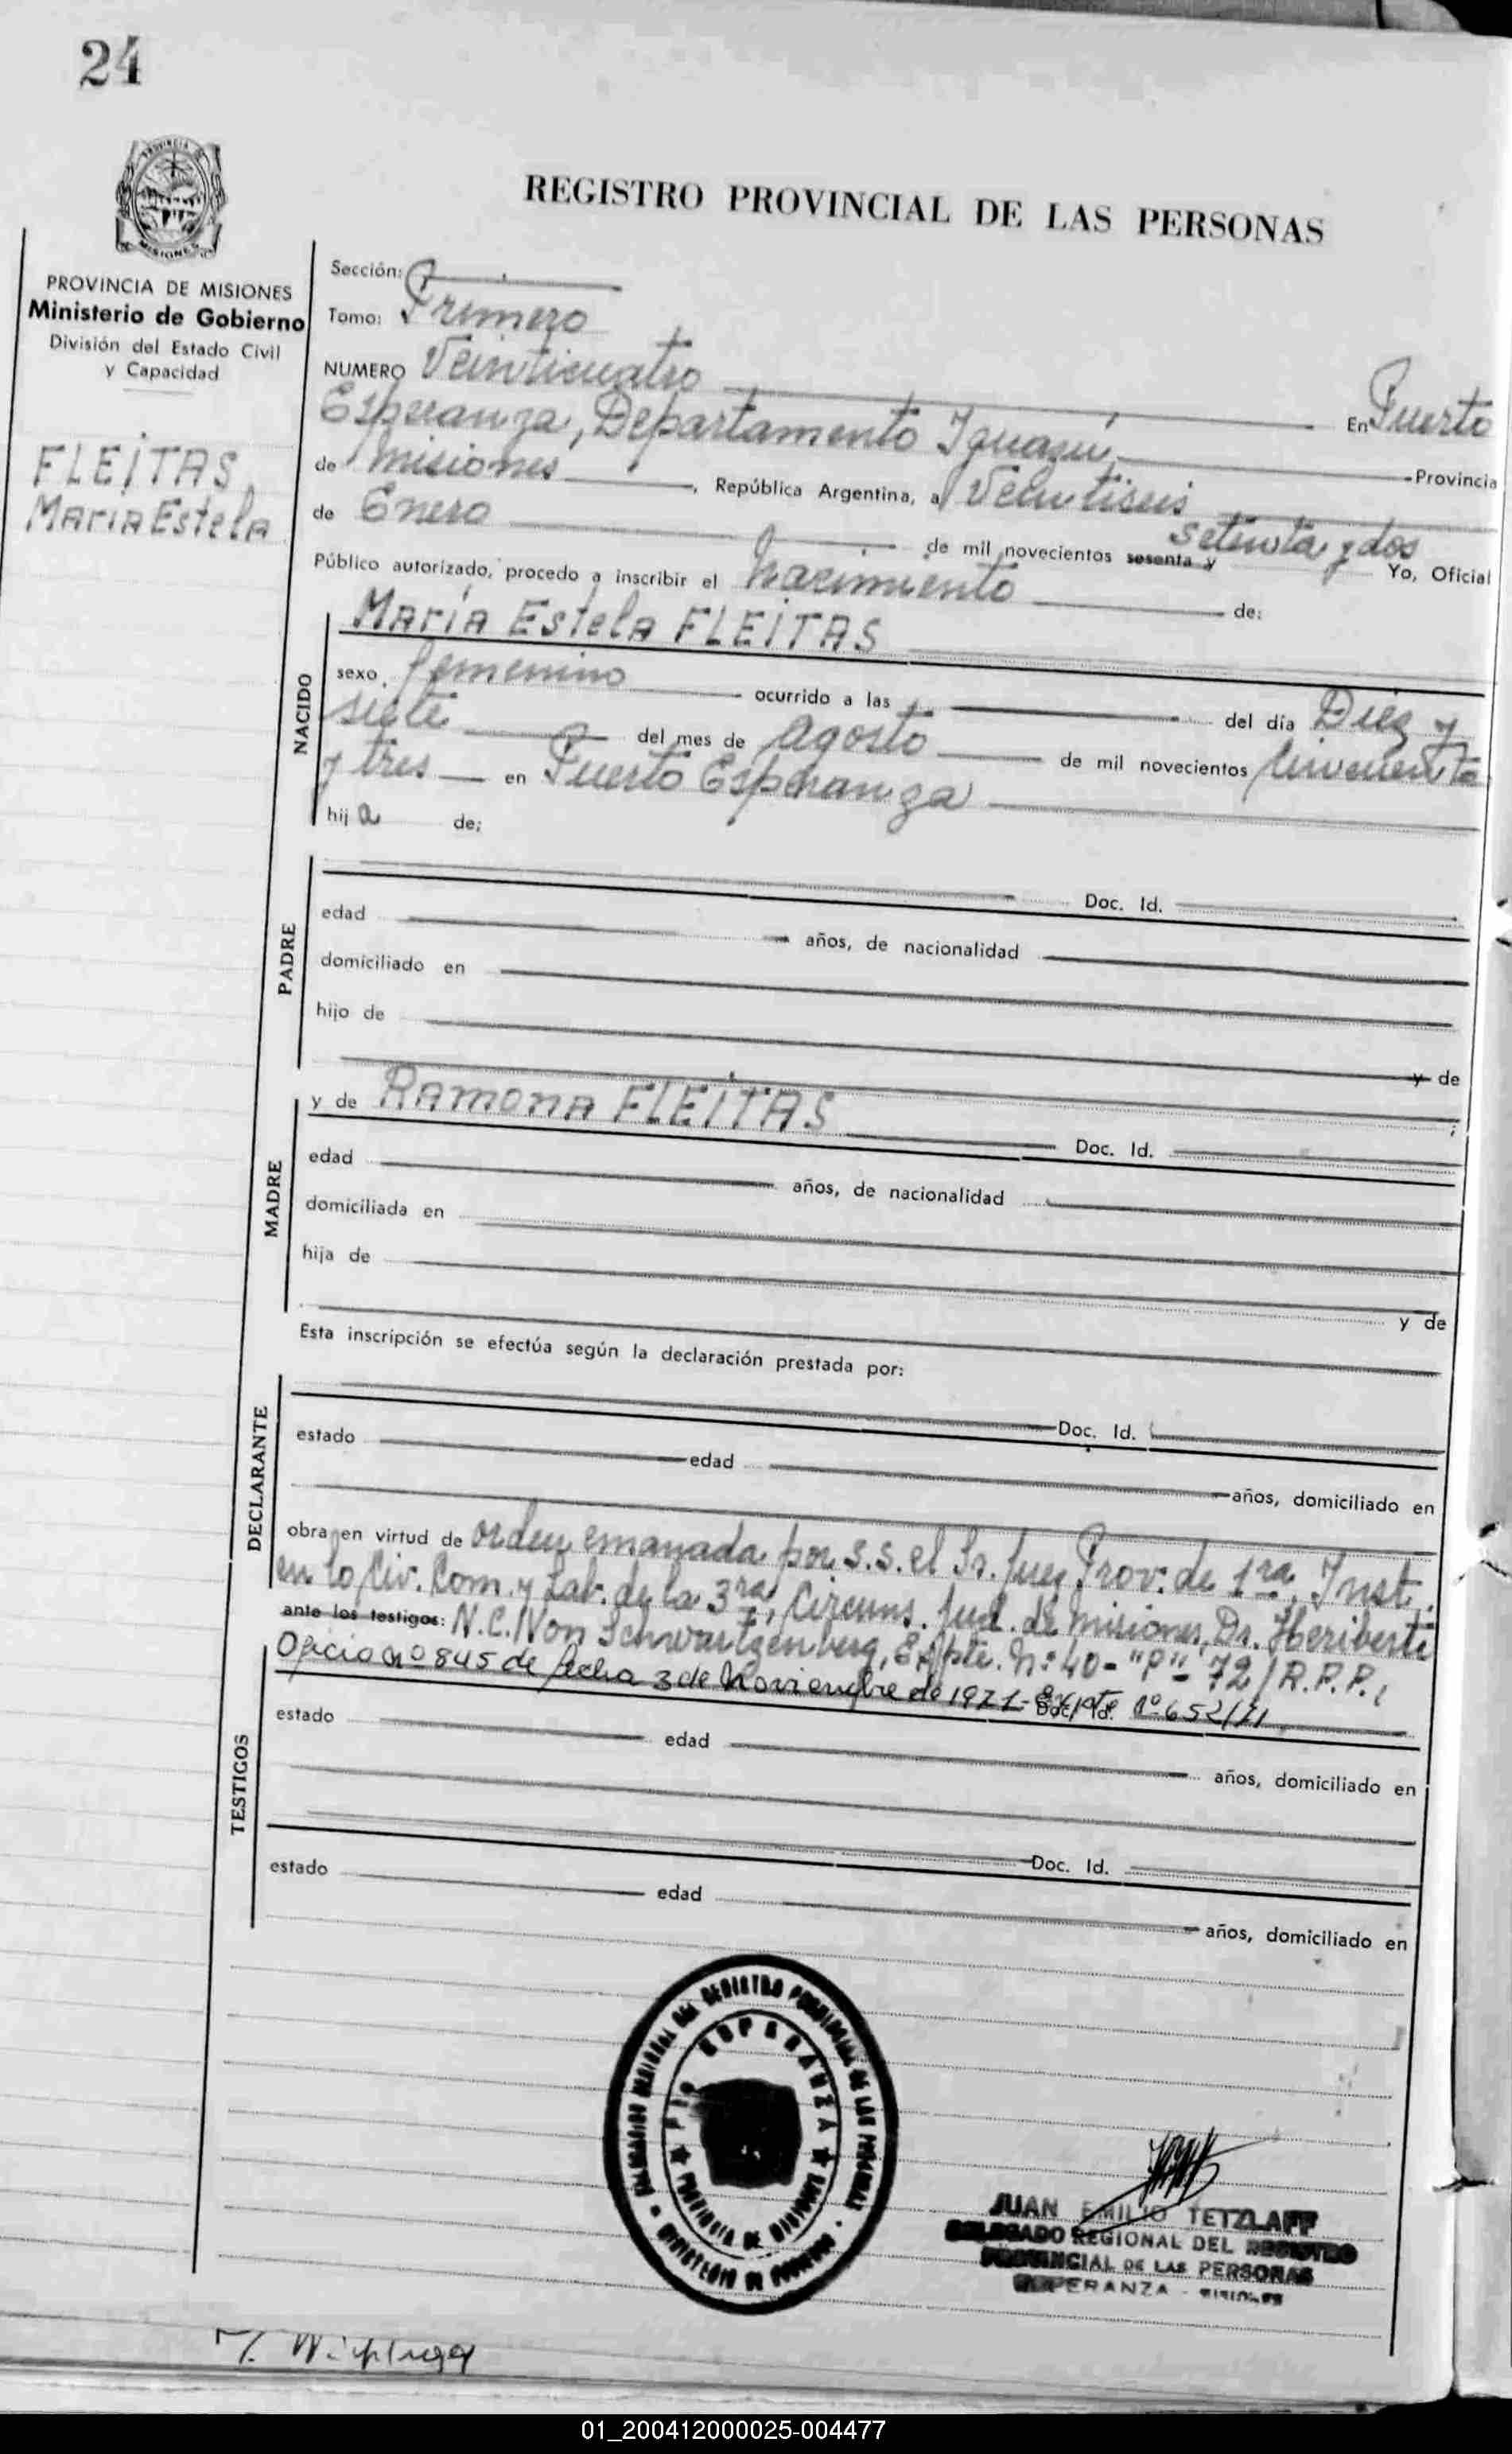 24
REGISTRO PROVINCIAL DE LAS PERSONAS
PROVINCIA DE MISIONES
Ministerio de Gobierno
División del Estado Civil
y Capacidad
FLEITAS,
María Estela
Sección:
Tomo: Primero
NUMERO Veinticuatro En Puerto
Esperanza, Departamento Iguazú, Provincia
de Misiones, República Argentina, a Veintiseis
de Enero de mil novecientos sesenta y setenta y dos Yo, Oficial
Público autorizado, procedo a inscribir el Nacimiento de:
NACIDO
María Estela FLEITAS
sexo femenino ocurrido a las del día Diez y
siete del mes de Agosto de mil novecientos cincuenta
y tres en Puerto Esperanza
hija de;
PADRE
Doc. Id.
edad años, de nacionalidad
domiciliado en
hijo de
y de
MADRE
y de Ramona FLEITAS Doc. Id.
edad años, de nacionalidad
domiciliada en
hija de
y de
Esta inscripción se efectúa según la declaración prestada por:
DECLARANTE
Doc. Id.
estado edad años, domiciliado en
obra en virtud de orden emanada por S.S. el Sr. Juez Prov. de 1ra. Inst.
en lo Civ. Com. y Lab. de la 3ra. Circuns. Jud. de Misiones, Dr. Heriberto
ante los testigos: N.C. Von Schwartzenberg, Expte. Nº 40-"P"-72/R.P.P.,
Oficio nº 845 de fecha 3 de Noviembre de 1971- Expte. nº 652/71
TESTIGOS
estado edad años, domiciliado en
Doc. Id.
estado edad años, domiciliado en
DELEGACION REGIONAL DEL REGISTRO PROVINCIAL DE LAS PERSONAS
MINISTERIO DE GOBIERNO
PTO ESPERANZA
PROVINCIA DE MISIONES
JUAN EMILIO TETZLAFF
DELEGADO REGIONAL DEL REGISTRO
PROVINCIAL DE LAS PERSONAS
ESPERANZA - MISIONES
01_200412000025-004477